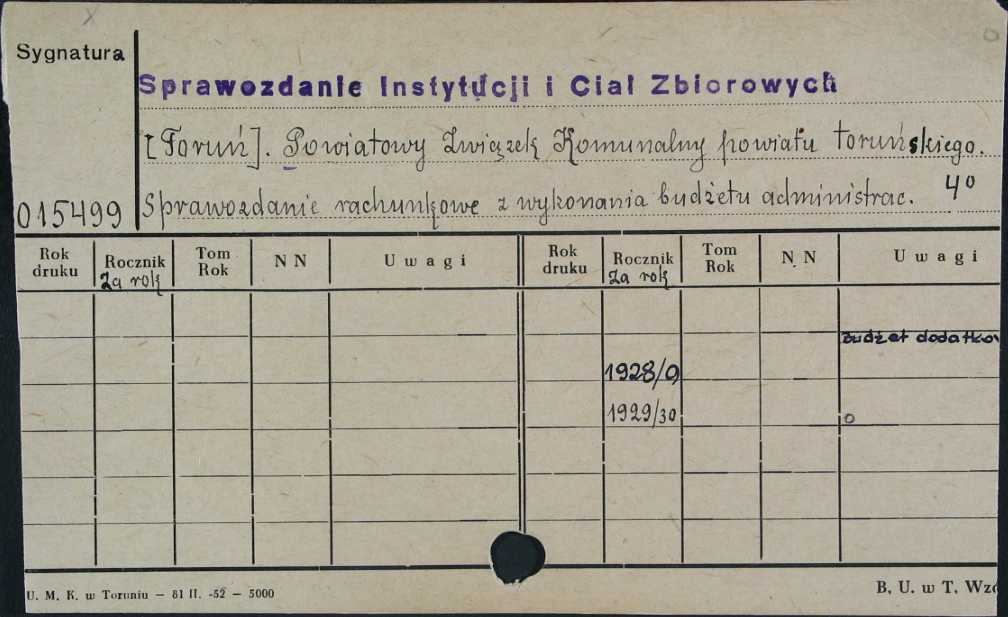 Sygnatura
Sprawozdanie Instytucji i Ciał Zbiorowych
[Toruń]. Powiatowy Związek Komunalny powiatu toruńskiego.
015499 Sprawozdanie rachunkowe z wykonania budżetu administrac. 4º
Rok druku Rocznik Za rok Tom Rok N N Uwagi Rok druku Rocznik Za rok Tom Rok N N Uwagi
Budżet dodatkow
1928/9
1929/30 o
U. M. K. w Toruniu — 81 II. -52 — 5000 B. U. w T.